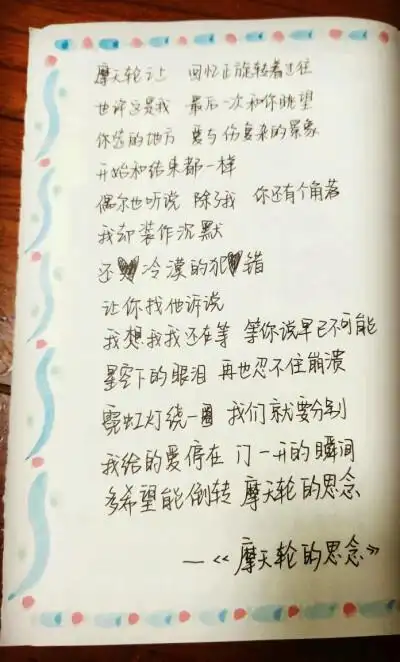 摩天轮上 回忆正旋转着过往
也许这是我 最后一次和你眺望
你签的地方 爱与伤复杂的景象
开始和结束都一样
偶尔也听说 除了我 你还有个角落
我却装作沉默
还冷漠的犯错
让你找他诉说
我想我我还在等 等你说早已不可能
星空下的眼泪 再也忍不住崩溃
霓虹灯绕一圈 我们就要分别
我给的爱停在 门一开的瞬间
多希望能倒转 摩天轮的思念
—《摩天轮的思念》